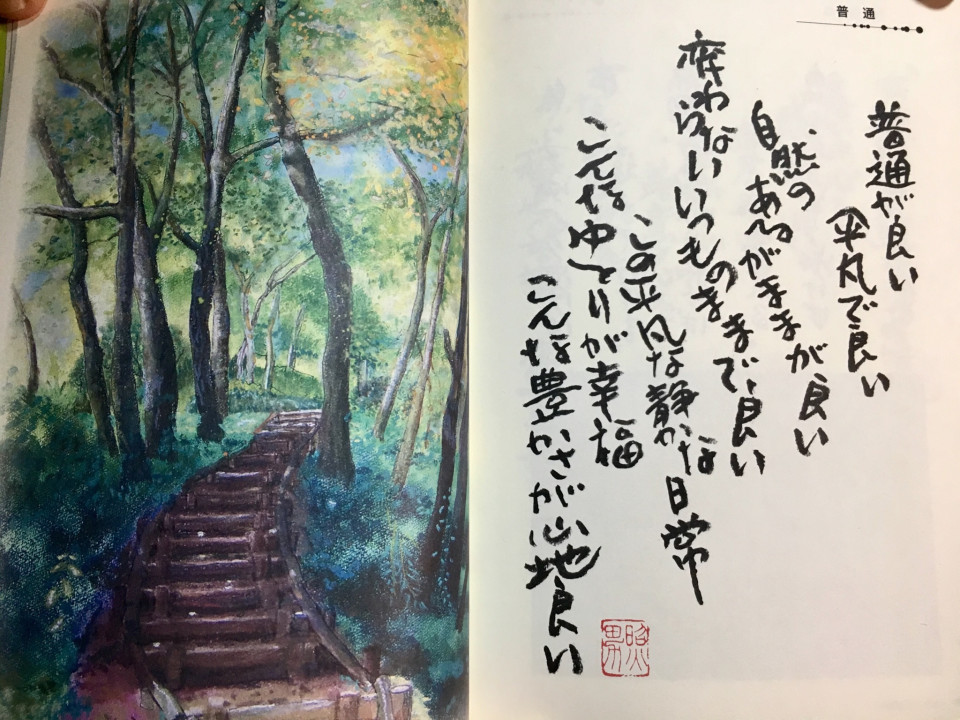 普通
普通が良い
平凡で良い
自然の
あるがままが、良い
変わらないいつものままで、良い
この平凡な静かな日常
こんなゆとりが幸福
こんな豊かさが心地良い
照男